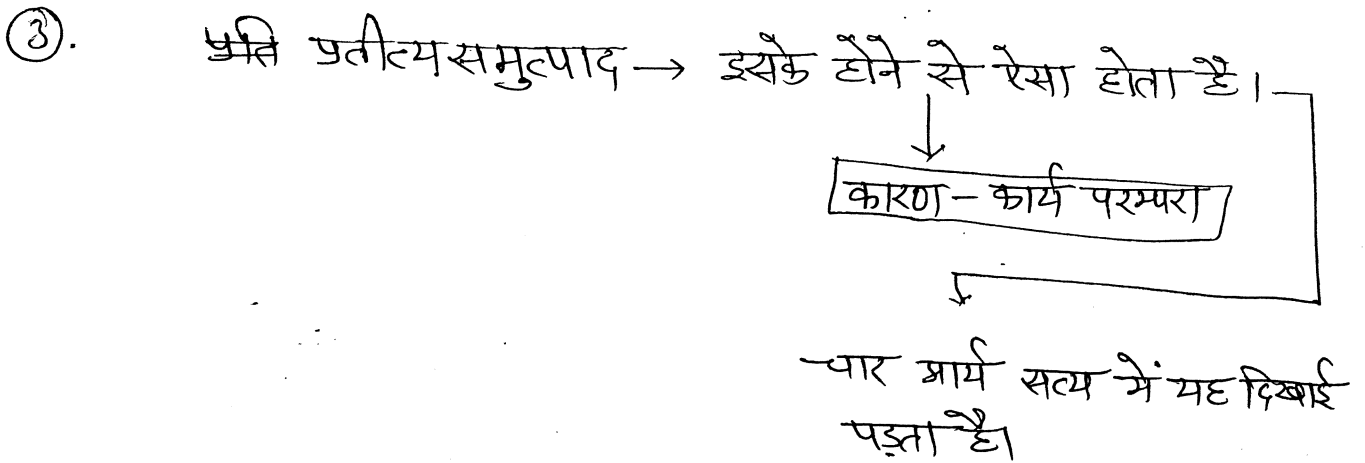 ③. प्रतीत्यसमुत्पाद → इसके होने से ऐसा होता है।
कारण - कार्य परम्परा
चार आर्य सत्य में यह दिखाई
पड़ता है।